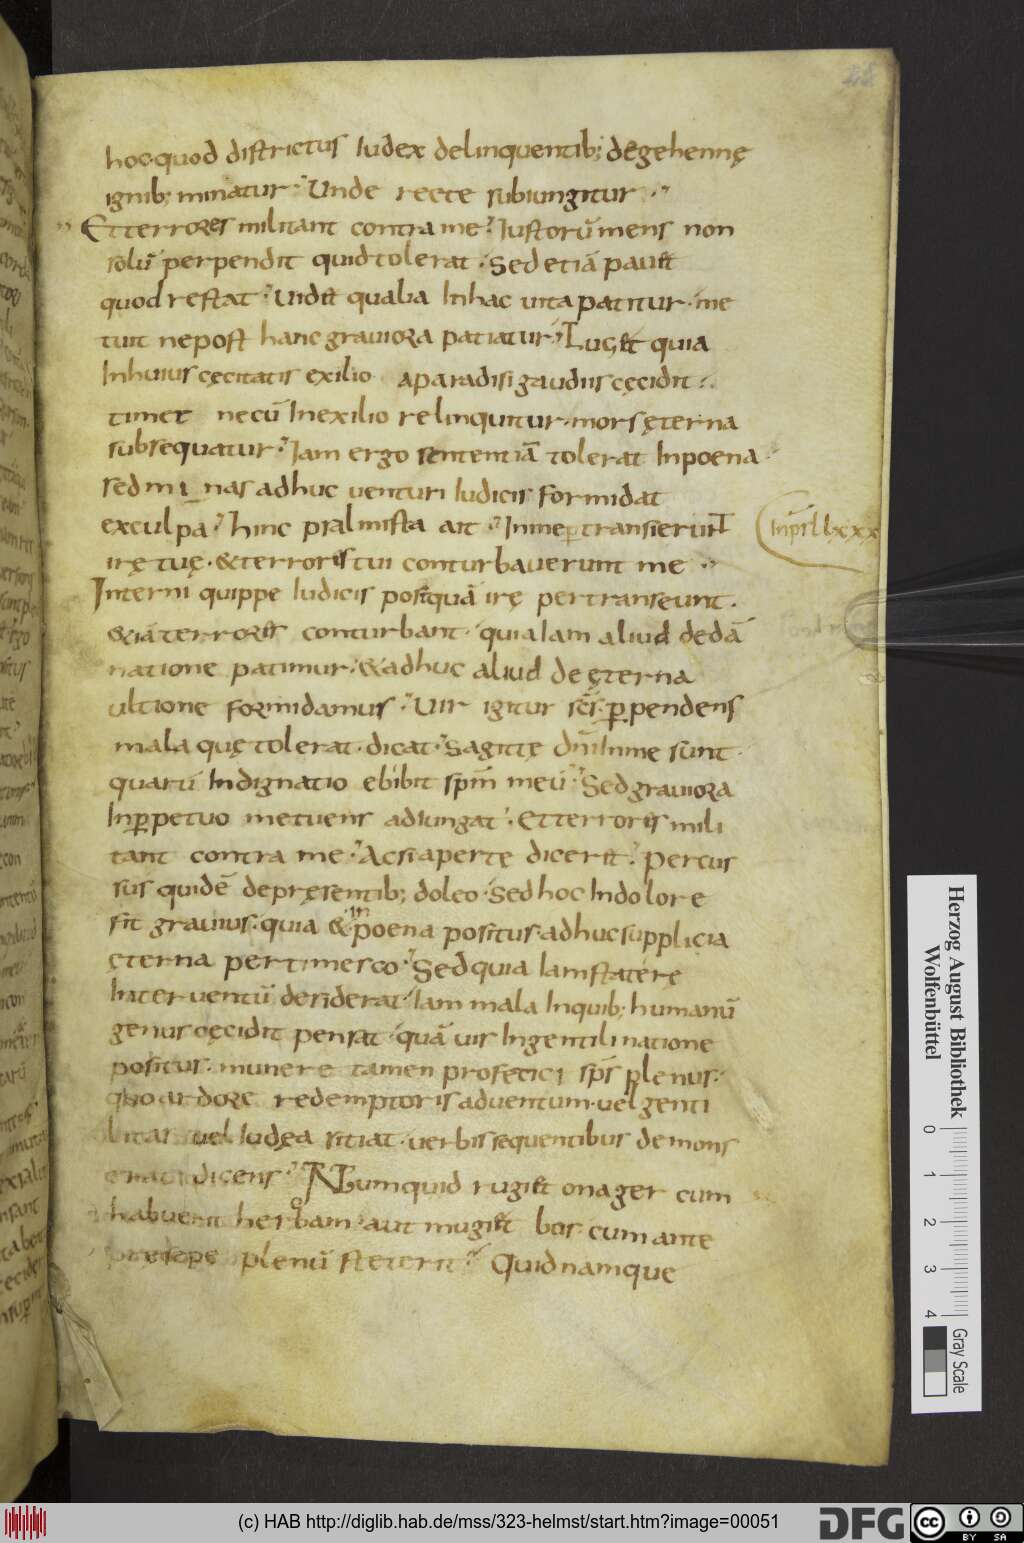 hoc quod districtus Iudex delinquentib; de gehennę
ignib; minatur. Unde recte subiungitur.
Et terrores militant contra me. Iustorū mens non
solū perpendit quid tolerat. Sed etiā pauet
quod restat. Uidet qualia In hac uita patitur. me
tuit ne post hanc grauiora patiatur. Luget quia
In huius cęcitatis exilio a paradisi gaudiis cęcidit.
timet ne cū In exilio relinquitur. mors ęterna
subsequatur. Iam ergo sententiā tolerat In poena
sed minas adhuc venturi Iudicis formidat
ex culpa. hinc psalmista ait. In me pertransierunt
irę tuę. & terrores tui conturbauerunt me.
In psl lxxx
Interni quippe Iudicis postquā irę pertranseunt.
& iā terrores conturbant. quia Iam aliud de dā
natione patimur. & adhuc aliud de ęterna
ultione formidamus. Uir igitur scs. ꝑpendens
mala quę tolerat. dicat. Sagittę dnī In me sunt.
quarū Indignatio ebibit spm meū. Sed grauiora
In ꝑpetuo metuens adiungat. Et terroris mili
tant contra me. Ac si aperte dicerit. Percus
sus quidē de pręsentib; doleo. Sed hoc In dolore
fit grauius. quia & in poena positus adhuc supplicia
ęterna pertimesco. Sed quia Iam statere
Interuentū desiderat. Iam mala In quib; humanū
genus cęcidit pensat. quā uis In gentili natione
positus. munere tamen profetici sps plenus.
quo ardore redemptoris aduentum. uel genti
litas uel Iudęa sitiat. uerbis sequentibus demons
trat dicens. Numquid rugiet onager cum
habuerit herbam. aut mugiet bos. cum ante
pręsepe plenū steterit. Quid namque
Herzog August Bibliothek
Wolfenbüttel
0 1 2 3 4
Gray Scale
(c) HAB http://diglib.hab.de/mss/323-helmst/start.htm?image=00051
DFG
cc BY SA